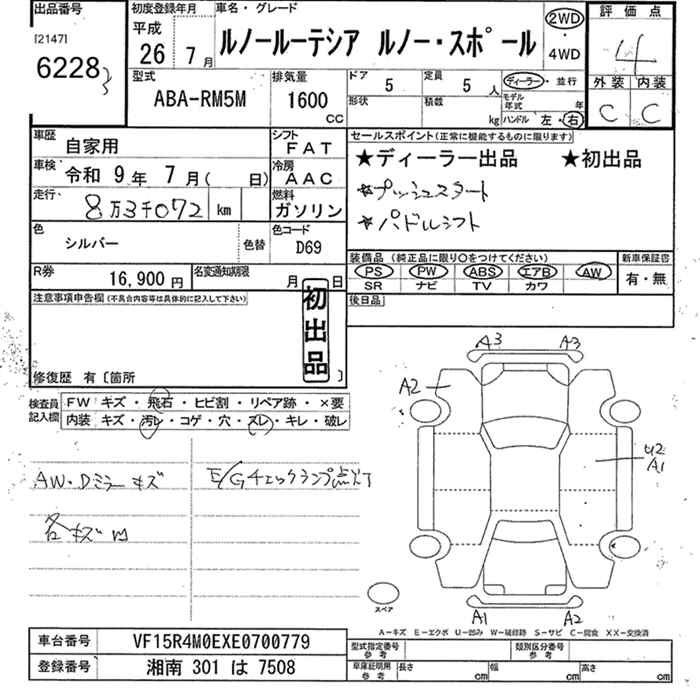 出品番号
[2147]
6228
初度登録年月
平成
26年 7月
車名・グレード
ルノールーテシア ルノー・スポール
2WD
・
4WD
評価点
4
外装 内装
C C
型式
ABA-RM5M
排気量
1600
CC
ドア
5
定員
5 人
形状
積載
kg
ディーラー・並行
モデル年式 年
ハンドル 左・右
車歴
自家用
シフト
FAT
車検
令和 9年 7月( 日)
冷房
AAC
走行
8万3千072 km
燃料
ガソリン
色
シルバー
色替
色コード
D69
R券
16,900円
名変通知期限
月 日
セールスポイント(正常に機能するものに限ります)
★ディーラー出品 ★初出品
★プッシュスタート
★パドルシフト
装備品 (純正品に限り○をつけてください)
PS PW ABS エアB AW
SR ナビ TV カワ
新車保証書
有・無
後日品
注意事項申告欄(不具合内容等は具体的に記入して下さい)
初出品
修復歴 有〔箇所 〕
検査員記入欄
FW キズ・飛石・ヒビ割・リペア跡・×要
内装 キズ・汚レ・コゲ・穴・スレ・キレ・破レ
AW・Dミラーキズ
E/Gチェックランプ点灯
各キズ凹
A3 A3
A2
U2
A1
A1 A2
スペア
A-キズ E-エクボ U-凹み W-補修跡 S-サビ C-腐食 XX-交換済
車台番号 VF15R4M0EXE0700779
登録番号 湘南 301 は 7508
型式指定番号 参考
類別区分番号 参考
車庫証明用 参考
長さ cm 幅 cm 高さ cm